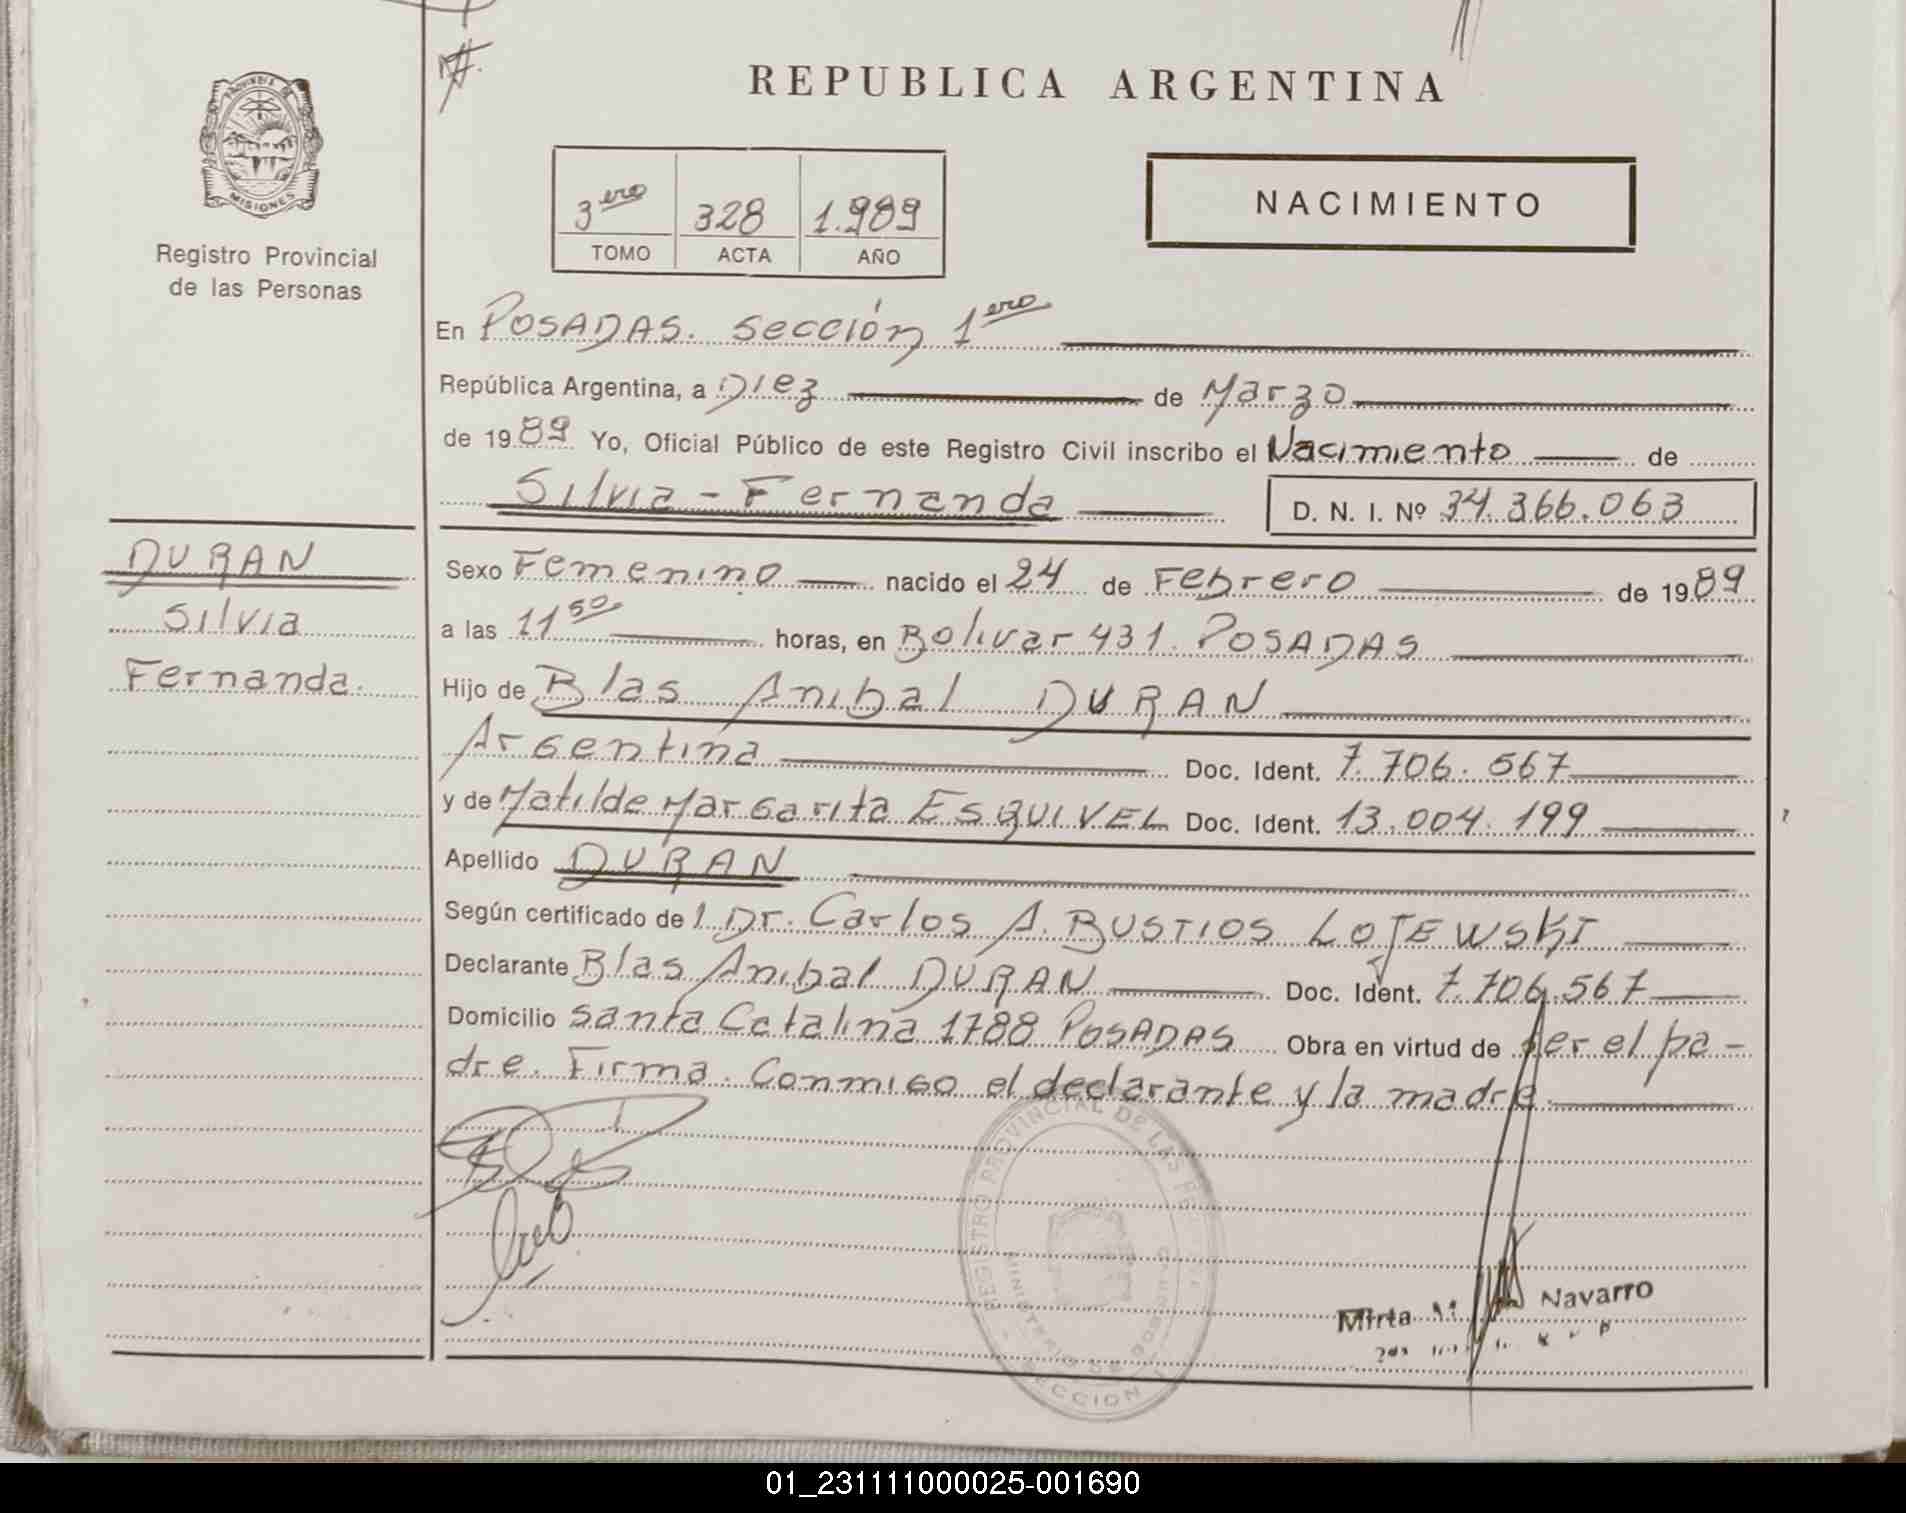 REPUBLICA ARGENTINA
PROVINCIA DE
MISIONES
Registro Provincial
de las Personas
3ero 328 1.989
TOMO ACTA AÑO
NACIMIENTO
En POSADAS. sección 1ero
República Argentina, a Diez de Marzo
de 1989 Yo, Oficial Público de este Registro Civil inscribo el Nacimiento de
Silvia - Fernanda D. N. I. Nº 34.366.063
DURAN
Silvia
Fernanda.
Sexo Femenino nacido el 24 de Febrero de 1989
a las 11 50 horas, en Bolivar 431. POSADAS
Hijo de Blas Anibal DURAN
Argentina Doc. Ident. 7.706.567
y de Matilde Margarita ESQUIVEL Doc. Ident. 13.004.199
Apellido DURAN
Según certificado de l Dr. Carlos A. BUSTIOS LOJEWSKI
Declarante Blas Anibal DURAN Doc. Ident. 7.706.567
Domicilio Santa Catalina 1788 POSADAS Obra en virtud de ser el pa-
dre. Firma. Conmigo el declarante y la madre.
REGISTRO PROVINCIAL DE LAS
MINISTERIO DE GOBIERNO
SECCION 1
Mirta M. Navarro
01_231111000025-001690